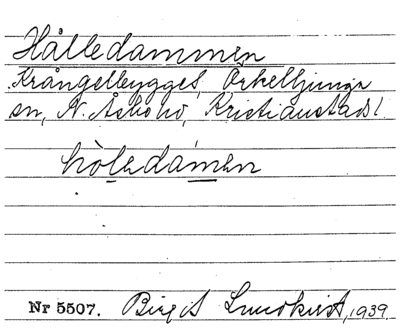 Hålledammen
Krångelbygget, Örkelljunga
sn, N. Åsbo hd, Kristianstads l.
hòledamen
Nr 5507. Birgit Lundkvist, 1939